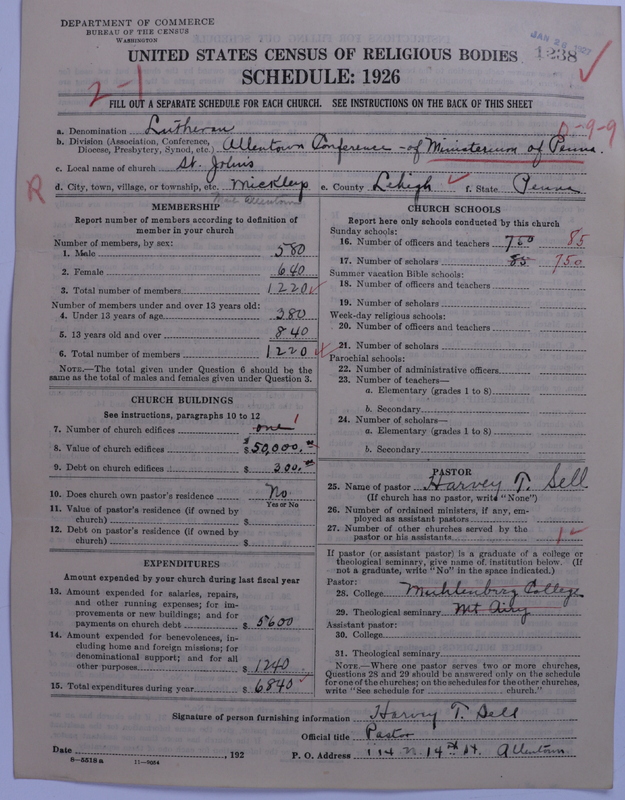 DEPARTMENT OF COMMERCE
BUREAU OF THE CENSUS
WASHINGTON
JAN 26 1927
1238
UNITED STATES CENSUS OF RELIGIOUS BODIES
SCHEDULE: 1926
2-1
FILL OUT A SEPARATE SCHEDULE FOR EACH CHURCH. SEE INSTRUCTIONS ON THE BACK OF THIS SHEET
a. Denomination Lutheran
0-9-9
b. Division (Association, Conference, Diocese, Presbytery, Synod, etc.) Allentown Conference - of Ministerium of Penna.
c. Local name of church St. John's
R
d. City, town, village, or township, etc. Mickleys e. County Lehigh f. State Penna
near Allentown
MEMBERSHIP
Report number of members according to definition of
member in your church
Number of members, by sex:
1. Male 580
2. Female 640
3. Total number of members 1220
Number of members under and over 13 years old:
4. Under 13 years of age 380
5. 13 years old and over 840
6. Total number of members 1220
NOTE.—The total given under Question 6 should be the
same as the total of males and females given under Question 3.
CHURCH BUILDINGS
See instructions, paragraphs 10 to 12
7. Number of church edifices one 1
8. Value of church edifices $ 50,000.
9. Debt on church edifices $ 300.
10. Does church own pastor's residence No
Yes or No
11. Value of pastor's residence (if owned by
church) $
12. Debt on pastor's residence (if owned by
church) $
EXPENDITURES
Amount expended by your church during last fiscal year
13. Amount expended for salaries, repairs,
and other running expenses; for im-
provements or new buildings; and for
payments on church debt $ 5600
14. Amount expended for benevolences, in-
cluding home and foreign missions; for
denominational support; and for all
other purposes $ 1240
15. Total expenditures during year $ 6840
CHURCH SCHOOLS
Report here only schools conducted by this church
Sunday schools:
16. Number of officers and teachers 750 85
17. Number of scholars 85 750
Summer vacation Bible schools:
18. Number of officers and teachers
19. Number of scholars
Week-day religious schools:
20. Number of officers and teachers
21. Number of scholars
Parochial schools:
22. Number of administrative officers
23. Number of teachers—
a. Elementary (grades 1 to 8)
b. Secondary
24. Number of scholars—
a. Elementary (grades 1 to 8)
b. Secondary
PASTOR
25. Name of pastor Harvey T. Sell
(If church has no pastor, write "None")
26. Number of ordained ministers, if any, em-
ployed as assistant pastors
27. Number of other churches served by the
pastor or his assistants 1
If pastor (or assistant pastor) is a graduate of a college or
theological seminary, give name of institution below. (If
not a graduate, write "No" in the space indicated.)
Pastor:
28. College Muhlenburg College
29. Theological seminary Mt Airy
Assistant pastor:
30. College
31. Theological seminary
NOTE.—Where one pastor serves two or more churches,
Questions 28 and 29 should be answered only on the schedule
for one of the churches; on the schedules for the other churches,
write "See schedule for church."
Signature of person furnishing information Harvey T. Sell
Official title Pastor
Date , 192 P. O. Address 114 N. 14th St. Allentown
8—5518 a 11—9064